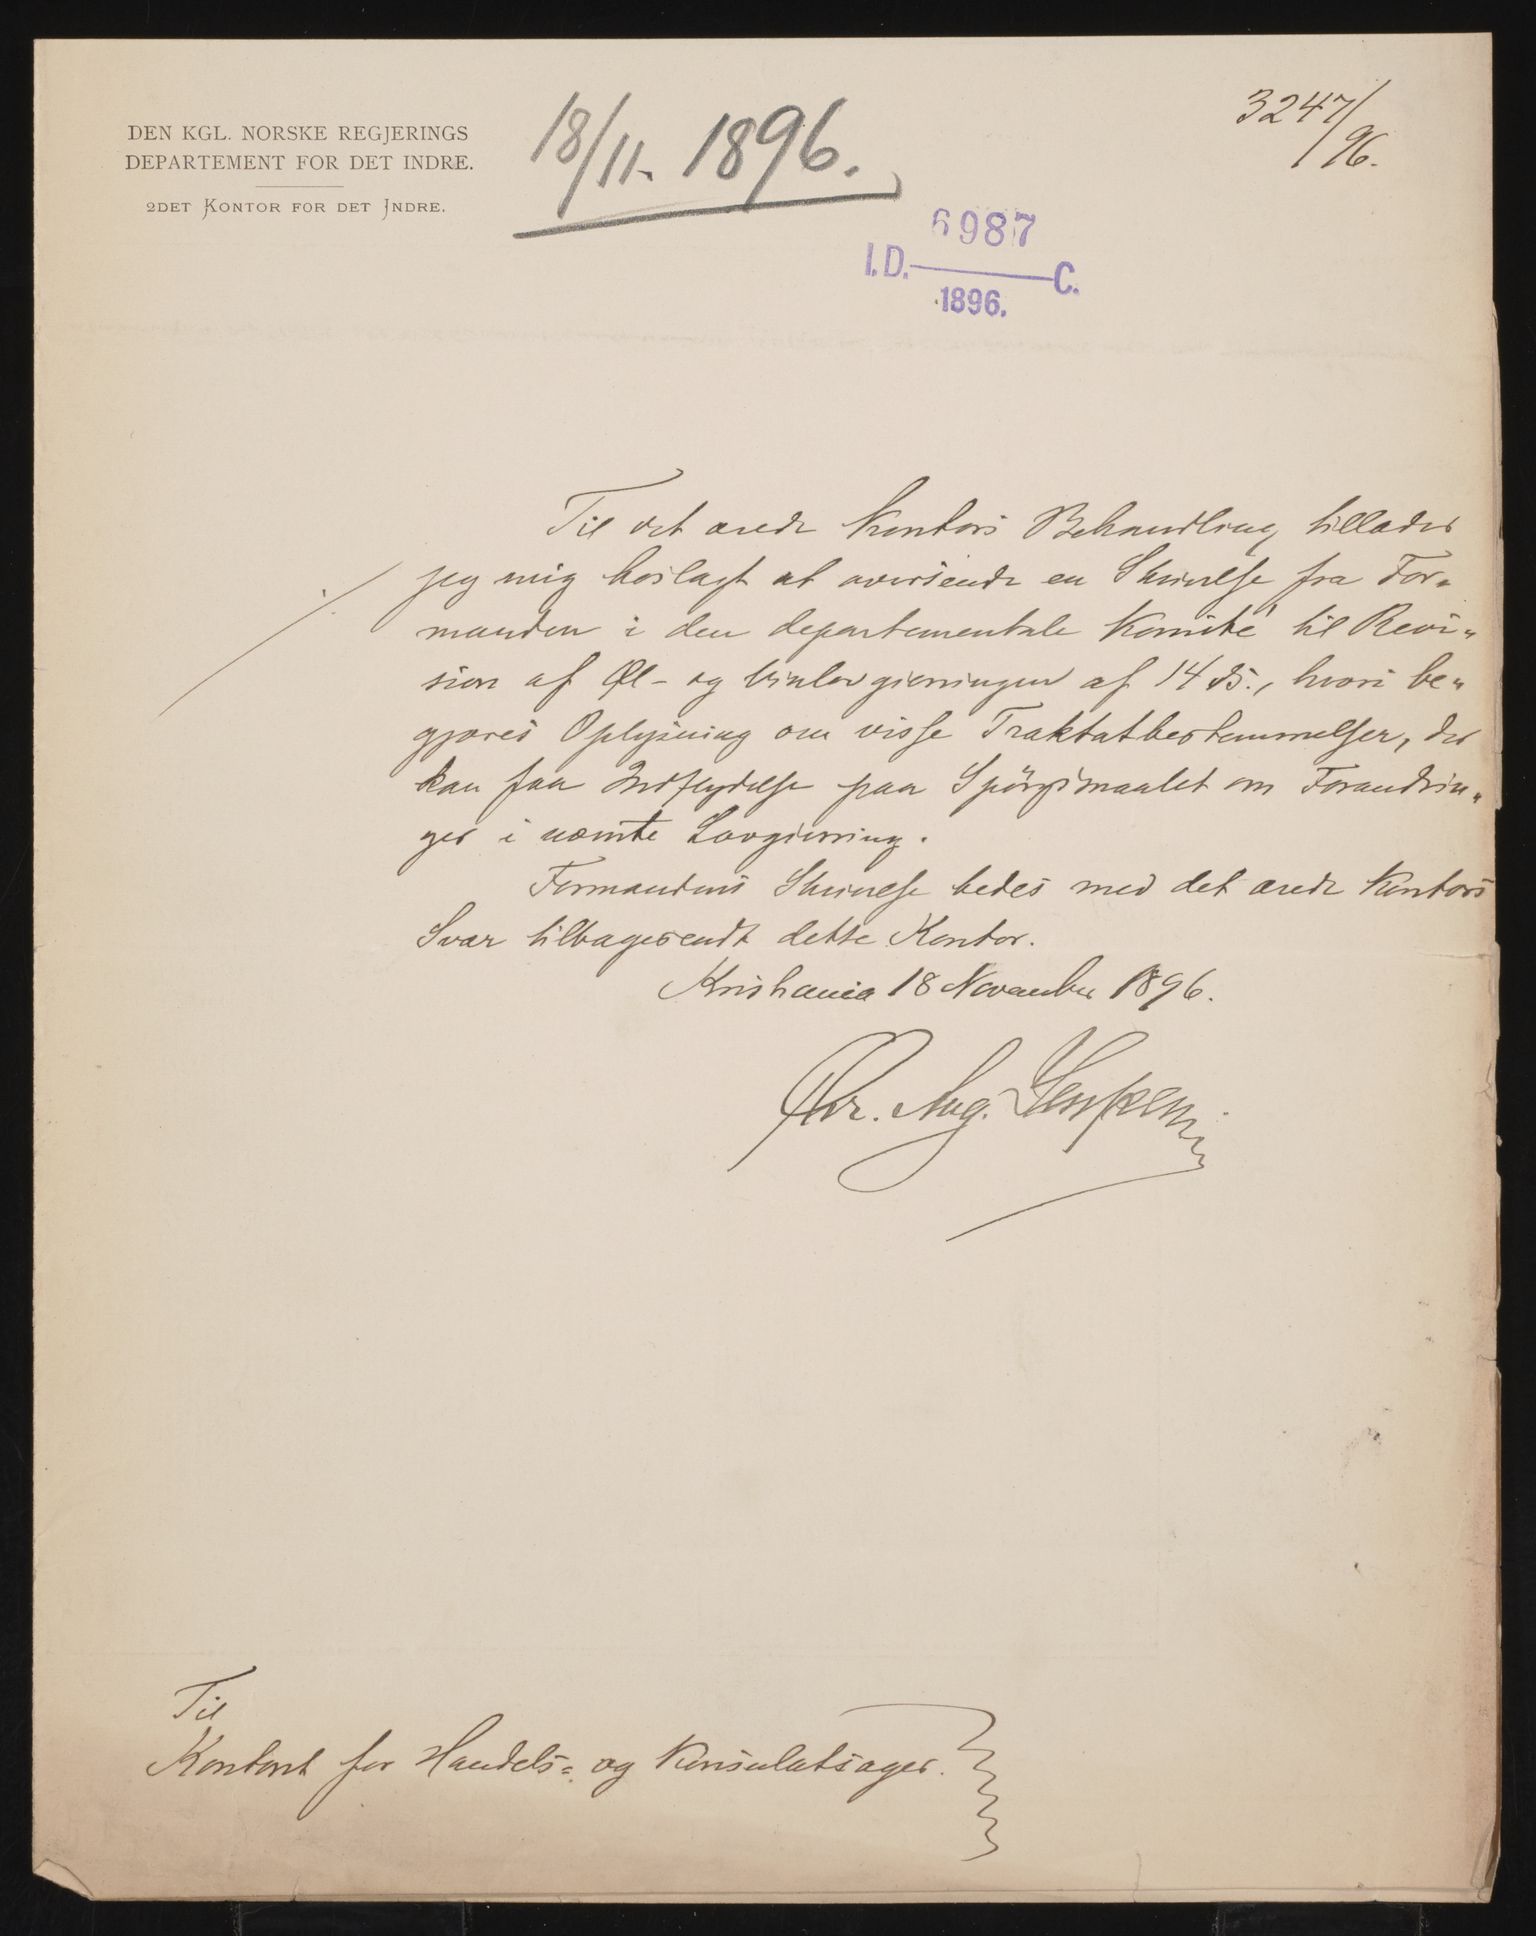 DEN KGL. NORSKE REGJERINGS
DEPARTEMENT FOR DET INDRE.
2DET KONTOR FOR DET INDRE.
18/11. 1896.
3247/96.
6987
I.D. C.
1896.
Til det ærede Kontors Behandling tillader
jeg mig hoslagt at oversende en Skrivelse fra For-
manden i den departementale Komité til Revi-
sion af Øl- og Vinlovgivningen af 14 ds., hvori be-
gjæres Oplysning om visse Traktatbestemmelser, der
kan faa Indflydelse paa Spörgsmaalet om Forandrin-
ger i nævnte Lovgivning.
Formandens Skrivelse bedes med det ærede Kontors
Svar tilbagesendt dette Kontor.
Kristiania 18 November 1896.
Chr. Aug.
Til
Kontoret for Handels- og Konsulatsager.